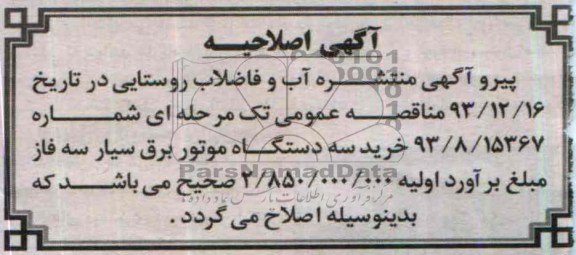 آگهی اصلاحیه
پیرو آگهی منتشره آب و فاضلاب روستایی در تاریخ
۹۳/۱۲/۱۶ مناقصه عمومی تک مرحله ای شماره
۹۳/۸/۱۵۳۶۷ خرید سه دستگاه موتور برق سیار سه فاز
ParsNamadData
مبلغ برآورد اولیه ۲/۸۵۰/۰۰۰/۰۰۰ صحیح می باشد که
بدینوسیله اصلاح می گردد .